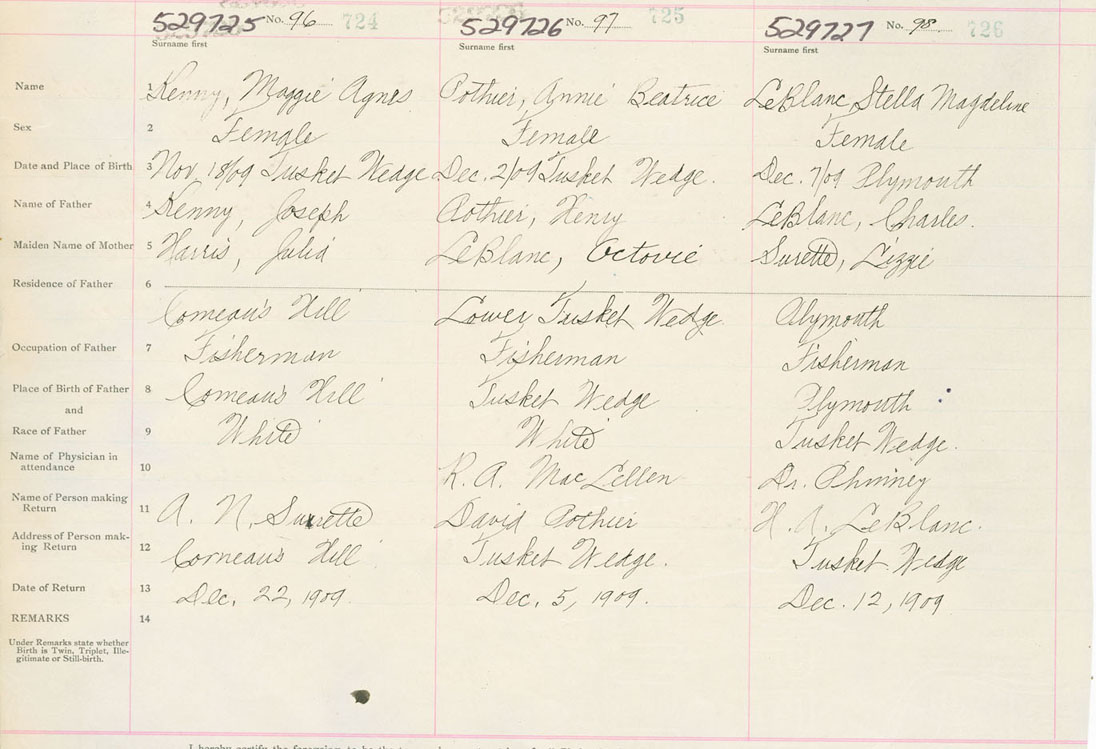 529725 No. 96 724 529726 No. 97 725 529727 No. 98 726
Surname first Surname first Surname first
Name 1 Kenny, Maggie Agnes Pothier, Annie Beatrice LeBlanc, Stella Magdeline
Sex 2 Female Female Female
Date and Place of Birth 3 Nov. 18/09 Tusket Wedge Dec. 2/09 Tusket Wedge. Dec. 7/09 Plymouth
Name of Father 4 Kenny, Joseph Pothier, Henry LeBlanc, Charles.
Maiden Name of Mother 5 Harris, Julia LeBlanc, Octovie Surette, Lizzie
Residence of Father 6
Comeau's Hill Lower Tusket Wedge Plymouth
Occupation of Father 7 Fisherman Fisherman Fisherman
Place of Birth of Father 8 Comeau's Hill Tusket Wedge Plymouth
and
Race of Father 9 White White Tusket Wedge.
Name of Physician in
attendance 10 R. A. MacLellen Dr. Phinney
Name of Person making
Return 11 A. N. Surrette David Pothier H. A. LeBlanc.
Address of Person mak-
ing Return 12 Comeau's Hill Tusket Wedge. Tusket Wedge
Date of Return 13 Dec. 22, 1909. Dec. 5, 1909. Dec. 12, 1909
REMARKS 14
Under Remarks state whether
Birth is Twin, Triplet, Ille-
gitimate or Still-birth.